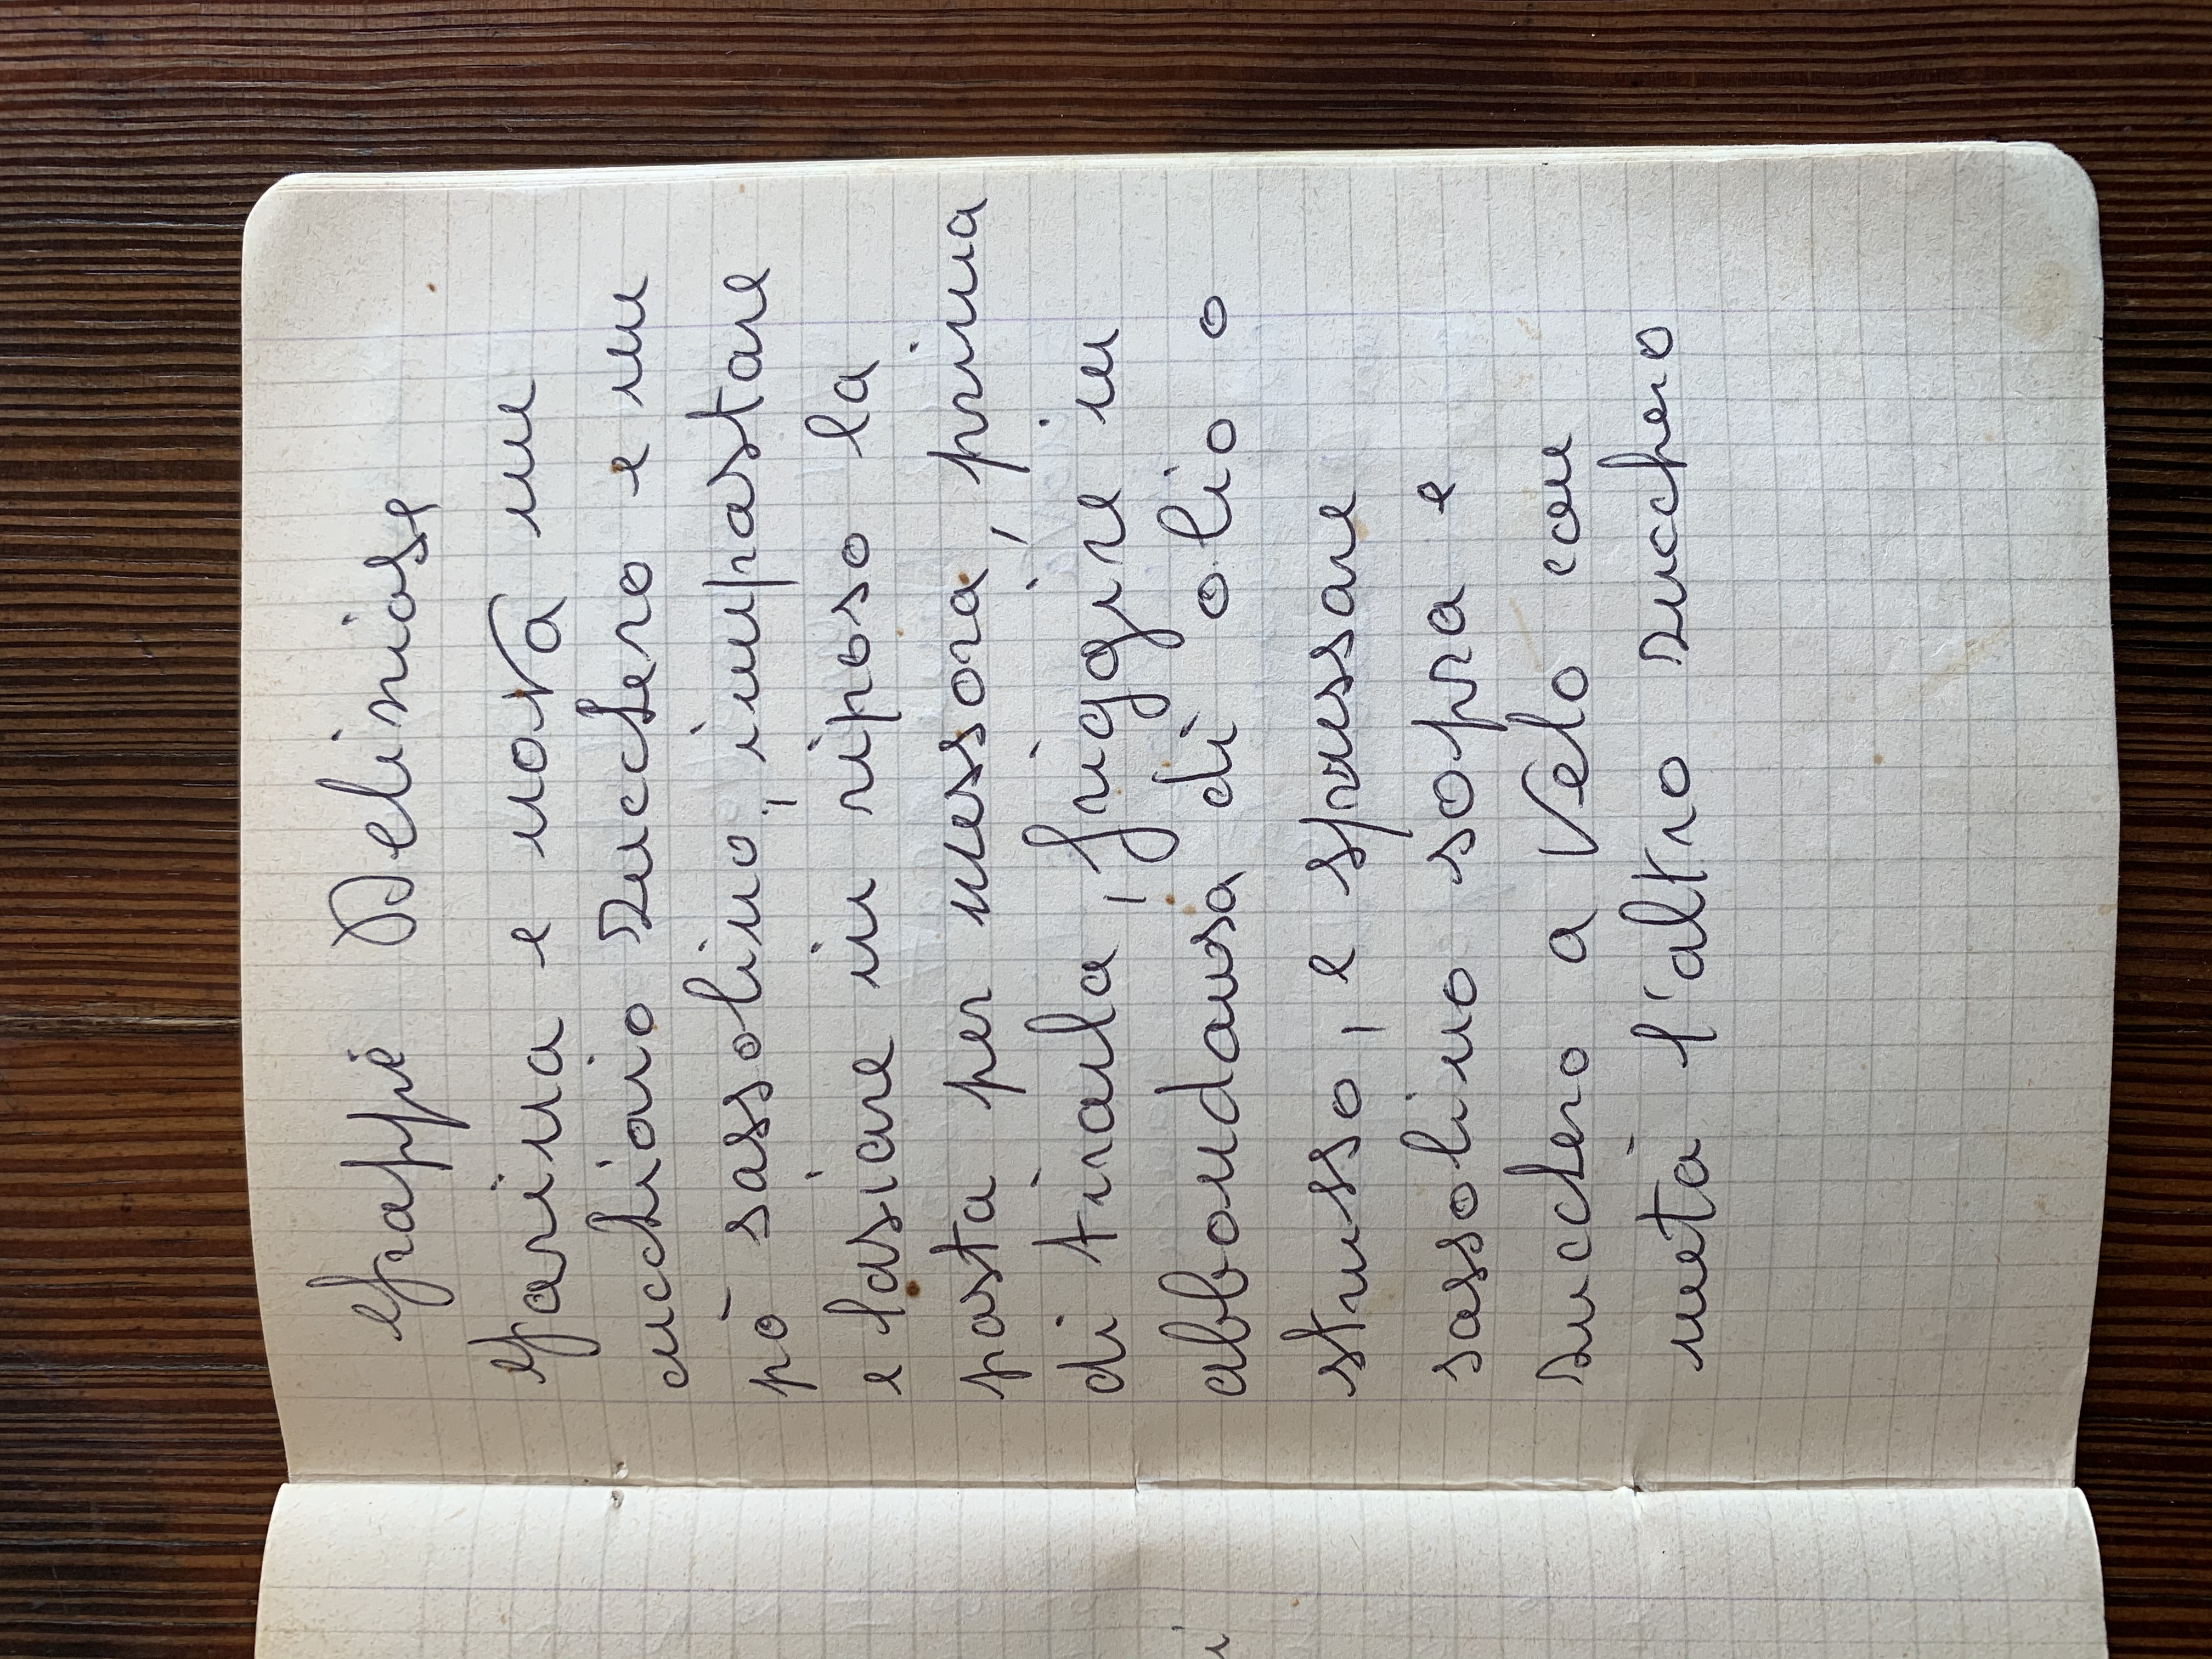 Frappè Delisiose
Farina e uova un
cucchiaio zucchero e un
pò sassolino, impastare
e lasiare in riposo la
pasta per messora, prima
di tirarla, friggire in
abbondansa di olio o
strusso, e spressare
sassolino sopra e
zucchero a velo con
metà l'altro zucchero